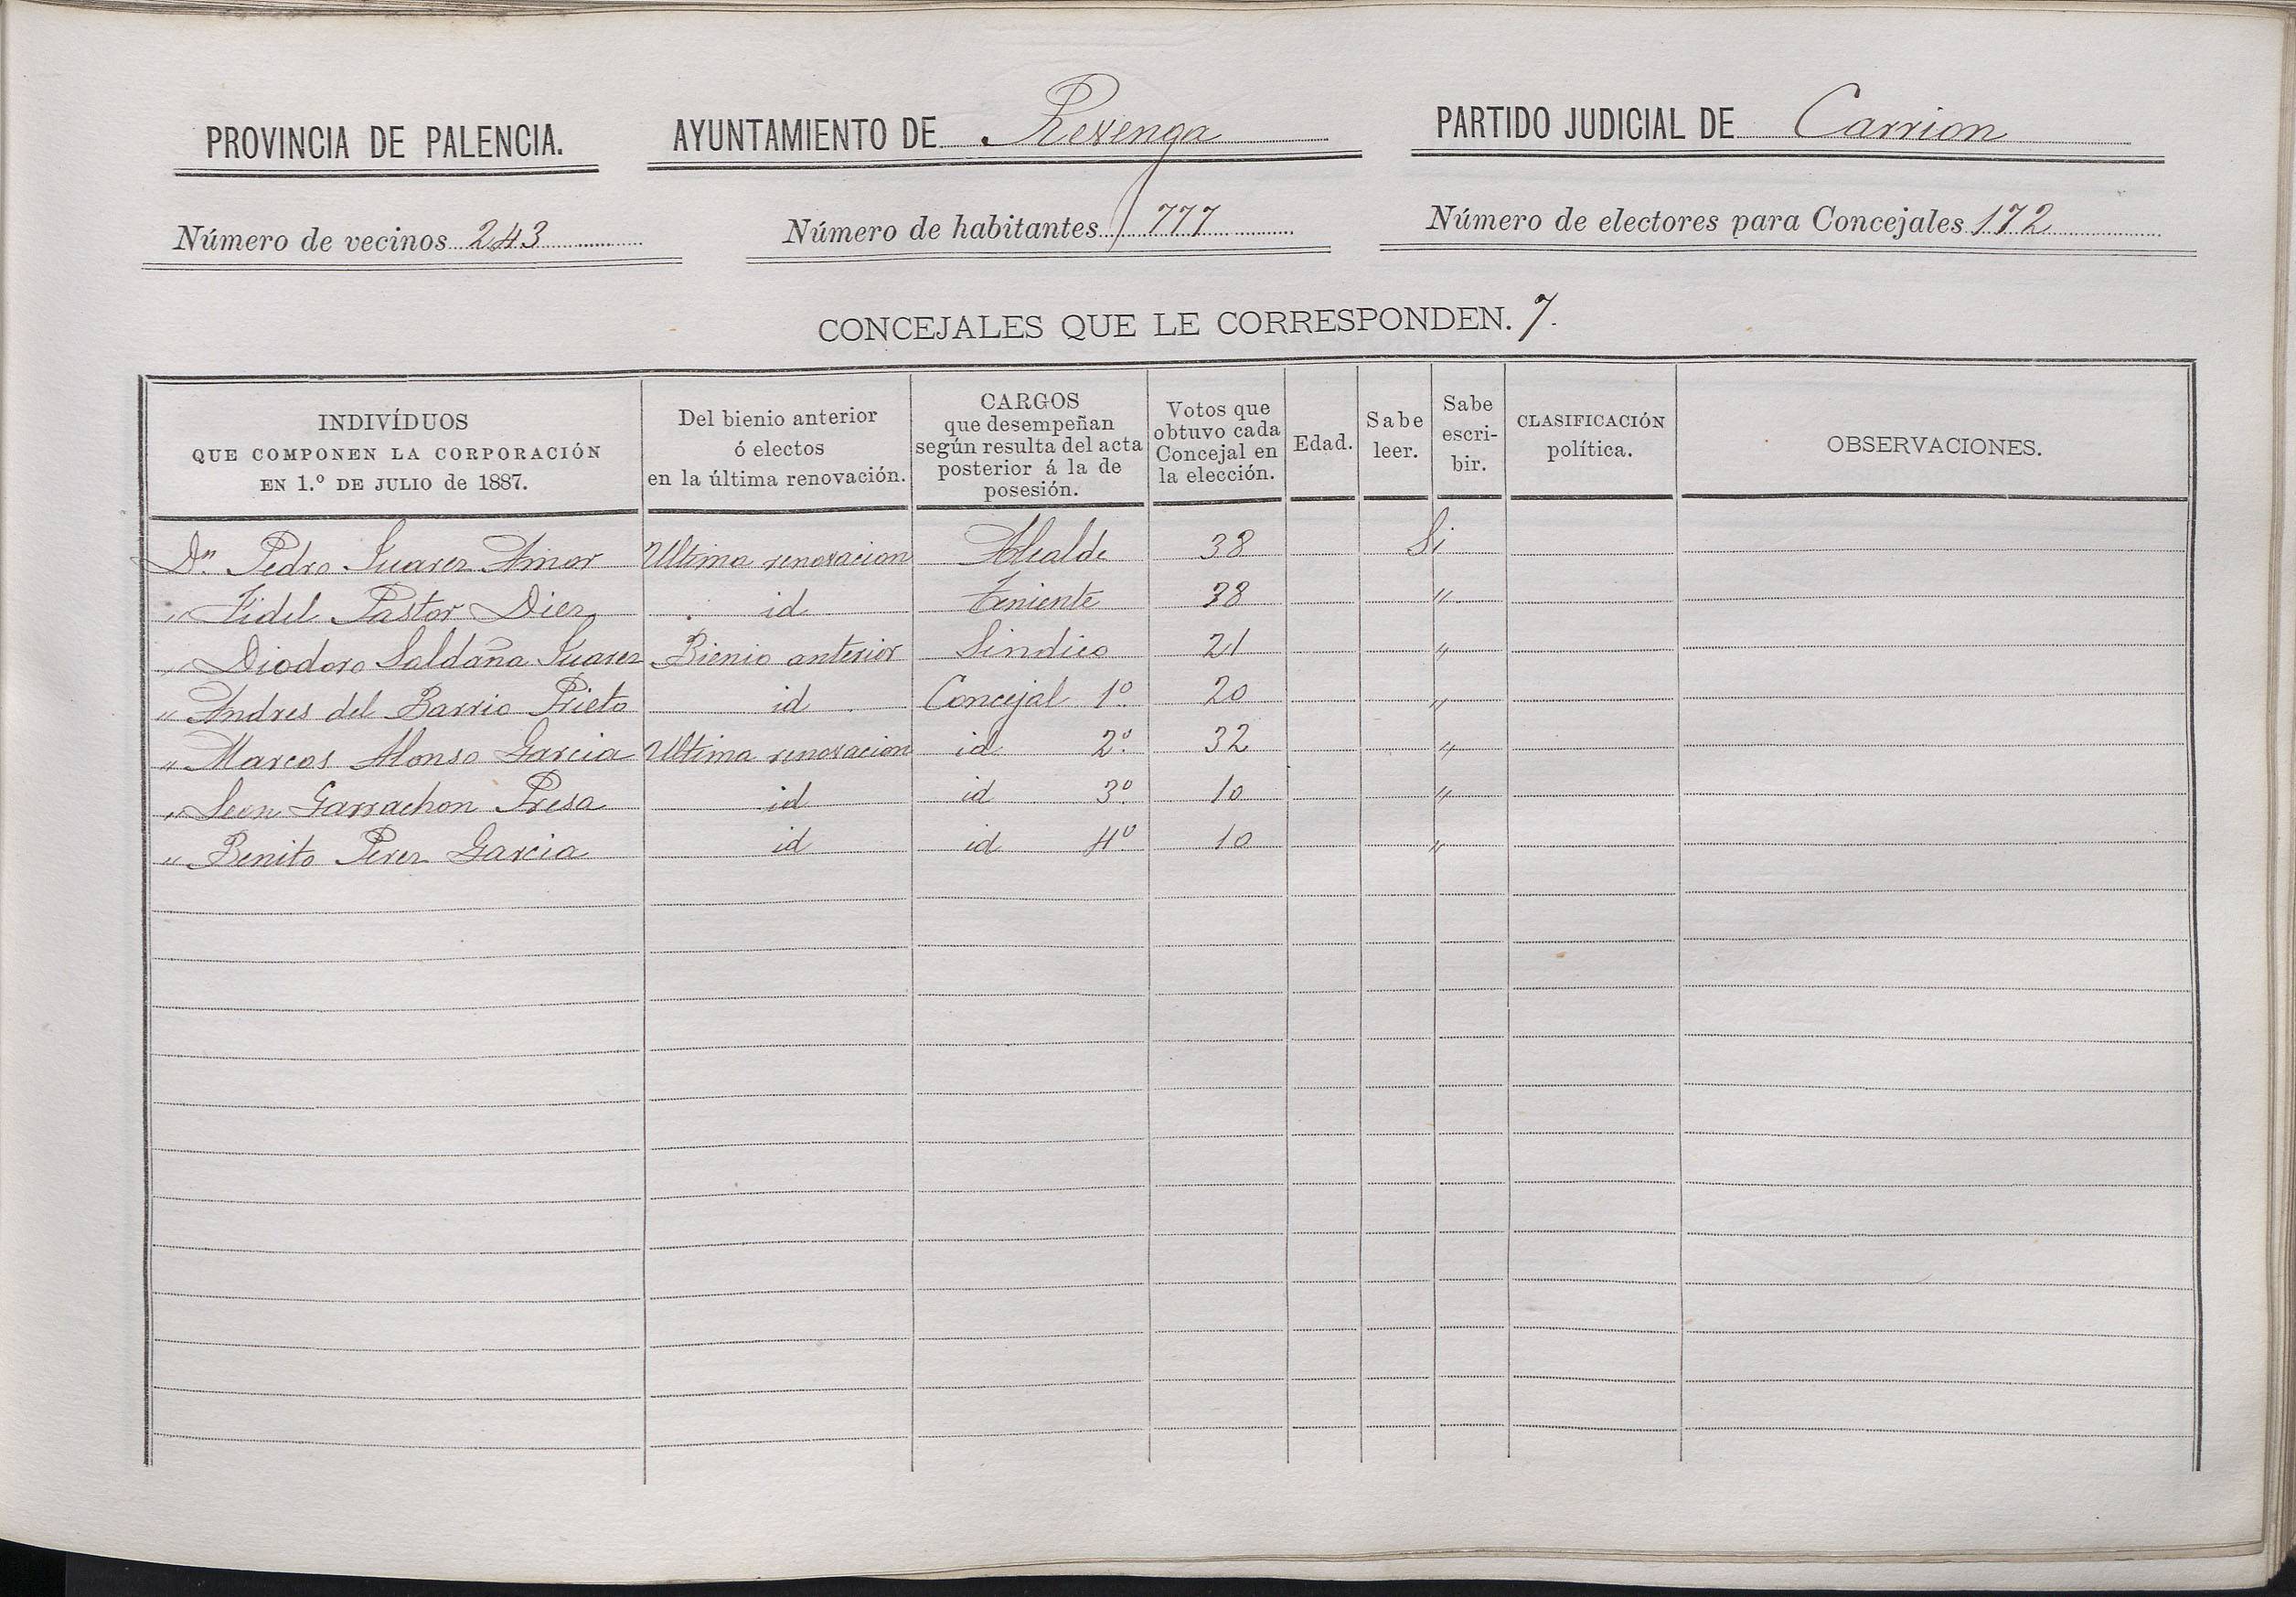 PROVINCIA DE PALENCIA. AYUNTAMIENTO DE Revenga PARTIDO JUDICIAL DE Carrion
Número de vecinos 243 Número de habitantes 777 Número de electores para Concejales 172
CONCEJALES QUE LE CORRESPONDEN. 7.
INDIVÍDUOS
QUE COMPONEN LA CORPORACIÓN
EN 1.º DE JULIO de 1887.
Del bienio anterior
ó electos
en la última renovación.
CARGOS
que desempeñan
según resulta del acta
posterior á la de
posesión.
Votos que
obtuvo cada
Concejal en
la elección.
Edad.
Sabe
leer.
Sabe
escri-
bir.
CLASIFICACIÓN
política.
OBSERVACIONES.
Dn. Pedro Suarez Amor Ultima renovacion Alcalde 38 Si
" Fidel Pastor Diez id Teniente 38 "
" Diodoro Saldaña Suarez Bienio anterior Sindico 21 "
" Andres del Barrio Prieto id Concejal 1º 20 "
" Marcos Alonso Garcia Ultima renovacion id 2º 32 "
" Leon Garrachon Presa id id 3º 10 "
" Benito Perez Garcia id id 4º 10 "